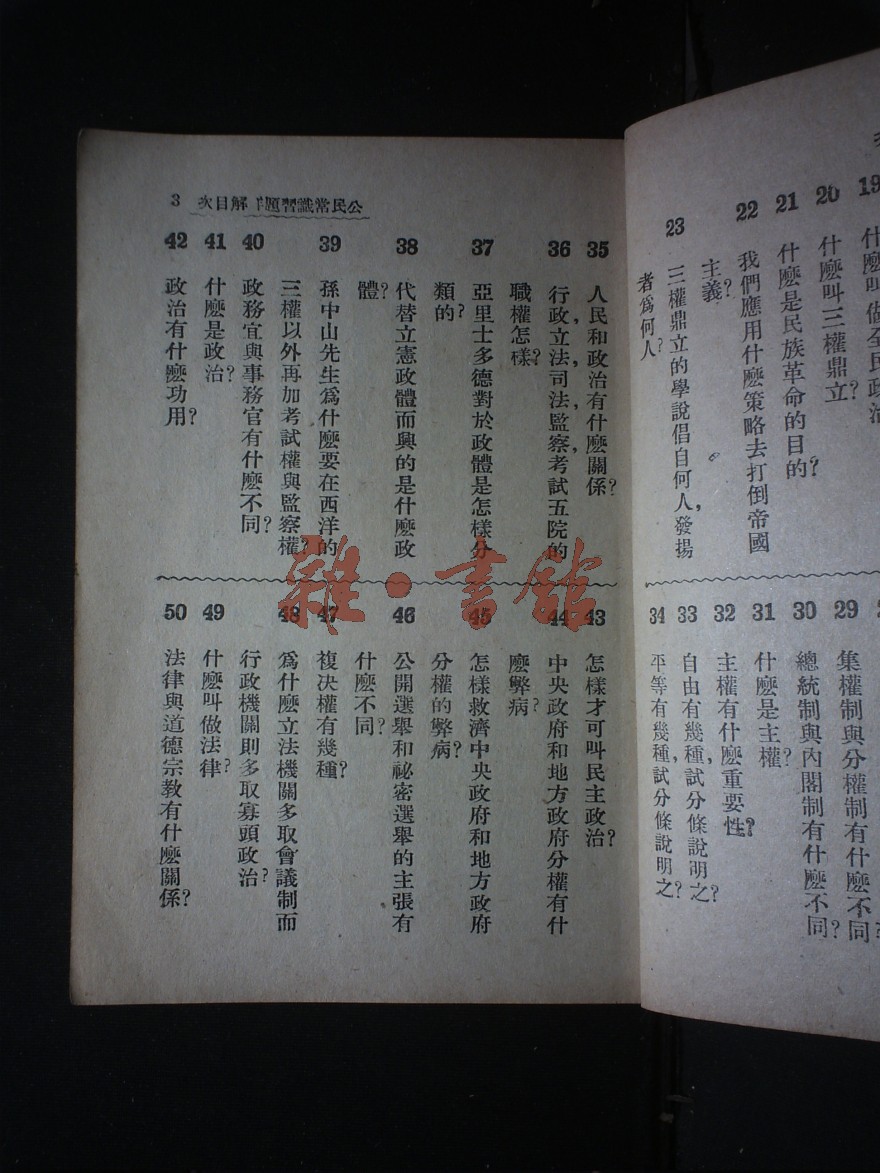 19 什麼叫做全民政治
20 什麼叫三權鼎立?
21 什麼是民族革命的目的?
22 我們應用什麼策略去打倒帝國
主義?
23 三權鼎立的學說倡自何人,發揚
者爲何人?
29 集權制與分權制有什麼不同?
30 總統制與內閣制有什麼不同?
31 什麼是主權?
32 主權有什麼重要性?
33 自由有幾種,試分條說明之?
34 平等有幾種,試分條說明之?
公民常識習題解目次 3
35 人民和政治有什麼關係?
36 行政,立法,司法,監察,考試五院的
職權怎樣?
37 亞里士多德對於政體是怎樣分
類的?
38 代替立憲政體而興的是什麼政
體?
39 孫中山先生爲什麼要在西洋的
三權以外再加考試權與監察權?
40 政務官與事務官有什麼不同?
41 什麼是政治?
42 政治有什麼功用?
43 怎樣才可叫民主政治?
44 中央政府和地方政府分權有什
麼弊病?
45 怎樣救濟中央政府和地方政府
分權的弊病?
46 公開選舉和祕密選舉的主張有
什麼不同?
47 複决權有幾種?
48 爲什麼立法機關多取會議制而
行政機關則多取寡頭政治?
49 什麼叫做法律?
50 法律與道德宗教有什麼關係?
雜·書館